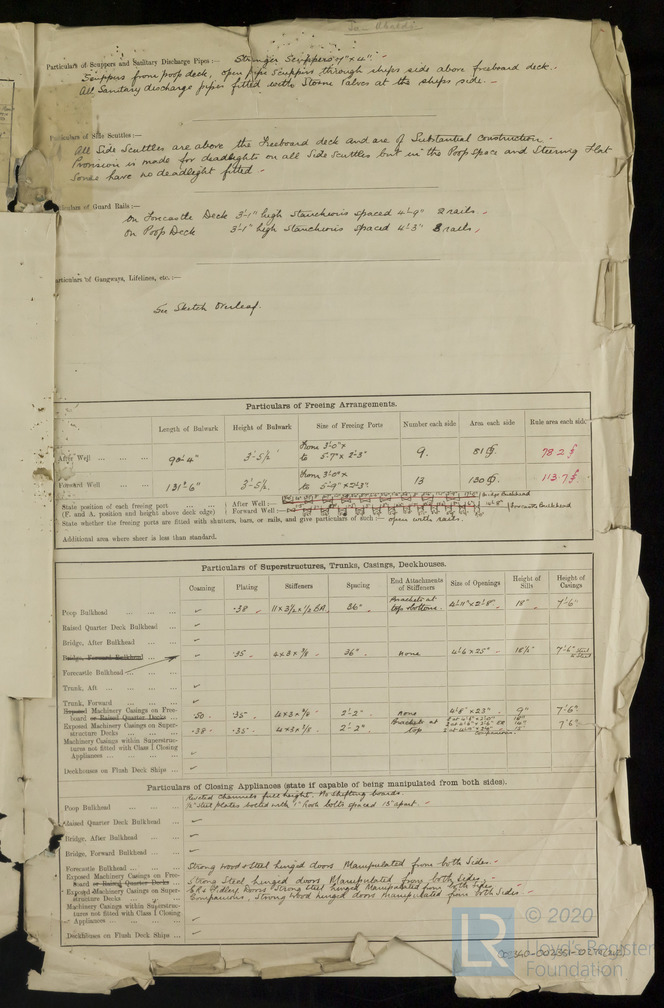 Particulars of Scuppers and Sanitary Discharge Pipes :— Stringer Scuppers 7" x 4" :-
Scuppers from poop deck, open pipe scuppers through ships side above freeboard deck.-
All Sanitary discharge pipes fitted with Storm Valves at the ships side.-
Particulars of Side Scuttles :—
All Side Scuttles are above the Freeboard deck and are of Substantial Construction.
Provision is made for deadlights on all Side Scuttles but in the Poop space and Steering Flat
Some have no deadlight fitted.-
Particulars of Guard Rails :—
On Forecastle Deck 3'-1" high Stanchions spaced 4'-9" 2 rails.
On Poop Deck 3'-1" high Stanchions spaced 4'-3" 3 rails.
Particulars of Gangways, Lifelines, etc. :—
See Sketch Overleaf.
Particulars of Freeing Arrangements.
Length of Bulwark Height of Bulwark Size of Freeing Ports Number each side Area each side Rule area each side
After Well 90'-4" 3'-5½" From 3'-0" x to 5'-7" x 2'-3" 9. 81 78.2
Forward Well 131'-6" 3'-5½" From 3'-0" x to 5'-9" x 2'-3" 13 130 113.7
State position of each freeing port After Well :— Bridge Bulkhead
(F. and A. position and height above deck edge) Forward Well :— Forecastle Bulkhead
State whether the freeing ports are fitted with shutters, bars, or rails, and give particulars of such :— open with rails.
Additional area where sheer is less than standard.
Particulars of Superstructures, Trunks, Casings, Deckhouses.
Coaming Plating Stiffeners Spacing End Attachments of Stiffeners Size of Openings Height of Sills Height of Casings
Poop Bulkhead ✓ .38 11 x 3½ x ½ BA. 36" Brackets at top & bottom. 4'-11" x 2'-8" 18" 7'-6"
Raised Quarter Deck Bulkhead ✓
Bridge, After Bulkhead ✓
Bridge, Forward Bulkhead ✓ .35 4 x 3 x 3/8 36" none 4'6 x 25" 18½" 7'-6"
Forecastle Bulkhead
Trunk, Aft ✓
Trunk, Forward ✓
Exposed Machinery Casings on Free-
board or Raised Quarter Decks .50 .35 4 x 3 x 3/8 2'-2" none 4'8" x 23" 9" 7'6"
Exposed Machinery Casings on Super-
structure Decks .38 .35 4 x 3 x 3/8 2'-2" Brackets at top 7'6"
Machinery Casings within Superstruc-
tures not fitted with Class I Closing
Appliances ✓
Deckhouses on Flush Deck Ships ✓
Particulars of Closing Appliances (state if capable of being manipulated from both sides).
Poop Bulkhead Riveted channels full height. No shifting boards.
½" steel plates bolted with 1" hook bolts spaced 15" apart.
Raised Quarter Deck Bulkhead ✓
Bridge, After Bulkhead ✓
Bridge, Forward Bulkhead ✓
Forecastle Bulkhead Strong wood & steel hinged doors Manipulated from both Sides.-
Exposed Machinery Casings on Free-
board or Raised Quarter Decks Strong Steel hinged doors Manipulated from both Sides.-
Exposed Machinery Casings on Super-
structure Decks E.R & Fidley Doors Strong Steel hinged Manipulated from both sides
Companions, Strong Wood hinged doors manipulated from both Sides
Machinery Casings within Superstruc-
tures not fitted with Class I Closing
Appliances ✓
Deckhouses on Flush Deck Ships ✓
LR © 2020
Lloyd's Register
Foundation